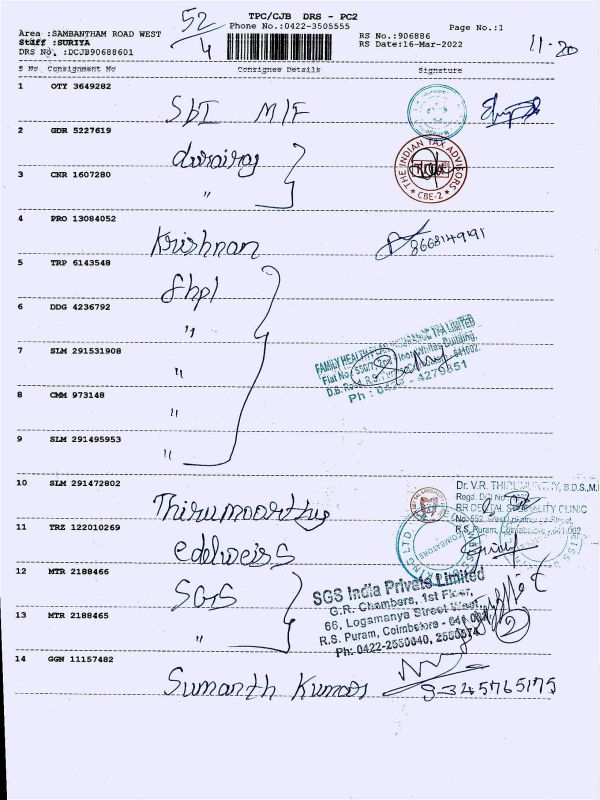 52/4
TPC/CJB DRS - PC2
Phone No.:0422-3505555
Page No.:1
Area :SAMBANTHAM ROAD WEST
Staff :SURIYA
DRS No. :DCJB90688601
RS No.:906886
RS Date:16-Mar-2022
11-20
S No Consignment No Consignee Details Signature
1 OTY 3649282
SbI M/F
2 GDR 5227619
durairaj
3 CNR 1607280
"
THE INDIAN TAX ADVISORS
CBE-2
4 PRO 13084052
Krishnan
8668149191
5 TRP 6143548
fhpl
6 DDG 4236792
"
7 SLM 291531908
"
FAMILY HEALTH PLAN INSURANCE TPA LIMITED
Floor, Whites Building,
641002.
Ph : 0422 - 4279851
8 CMM 973148
"
9 SLM 291495953
"
10 SLM 291472802
Thirumoorthy
Dr. V.R. B.D.S.,M.
Regd. DCI No
RR DENTAL SPECIALITY CLINIC
R.S. Puram, Coimbatore
11 TRZ 122010269
edelweiss
12 MTR 2188466
SGS
13 MTR 2188465
"
SGS India Private Limited
G.R. Chambers, 1st Floor,
66, Logamanya Street West,
R.S. Puram, Coimbatore - 641 002
Ph: 0422-2550640,
2
14 GGN 11157482
Sumanth Kumar
9345765175